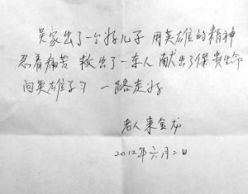 吴家出了一个好儿子 用英雄的精神
忍着痛苦 救出了一车人 献出了保贵生命
向英雄学习 一路走好
老人 来金龙
2012年六月二日